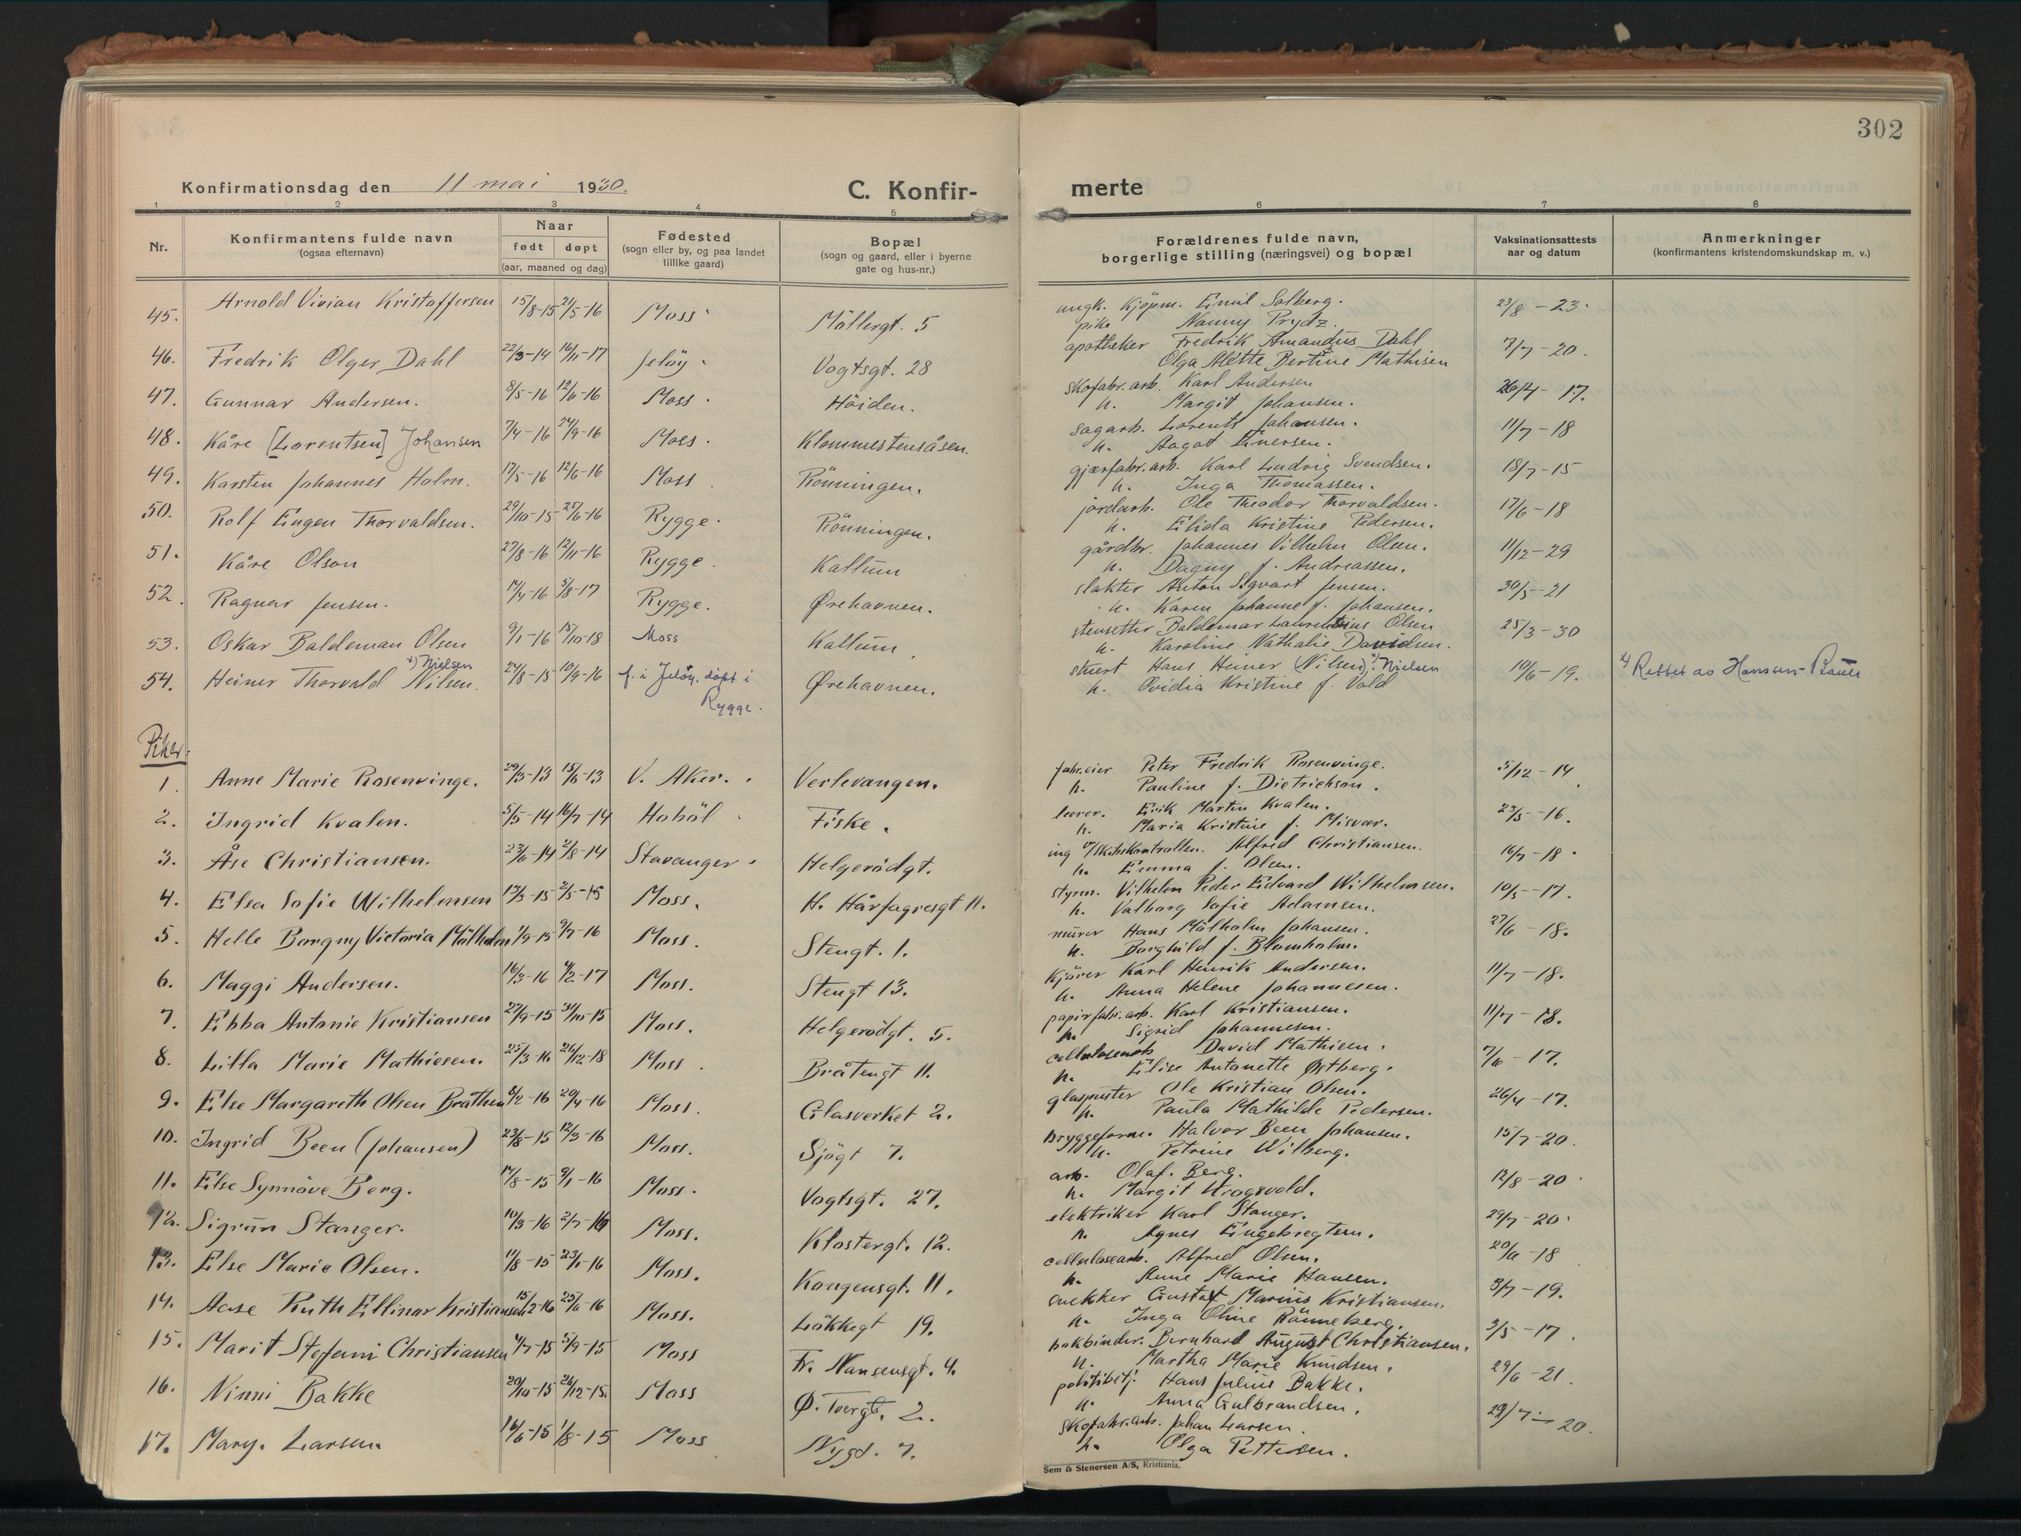 302
Konfirmationsdag den 11 mai 1930. C. Konfirmerte
1 2 3 4 5 6 7 8
Nr. Konfirmantens fulde navn (ogsaa efternavn) Naar født døpt (aar, maaned og dag) Fødested (sogn eller by, og paa landet tillike gaard) Bopæl (sogn og gaard, eller i byerne gate og hus-nr.) Forældrenes fulde navn, borgerlige stilling (næringsvei) og bopæl Vaksinationsattests aar og datum Anmerkninger (konfirmantens kristendomskundskap m. v.)
45. Arnold Vivian Kristoffersen 15/8-15 21/5-16 Moss Möllergt. 5 ungk. Kjöpm. Emil Solberg. 23/8-23.
pike Nanny Prydz.
46. Fredrik Olger Dahl 22/3-14 16/11-17 Jelöy Vogtsgt. 28 apotheker Fredrik Amandus Dahl 7/7-20.
Olga Mette Bertine Mathisen
47. Gunnar Andersen. 8/5-16 12/6-16 Moss. Höiden. skofabr.arb. Karl Andersen 26/4-17.
h. Margit Johansen.
48. Kåre [Lorentsen] Johansen 7/4-16 24/9-16 Moss. Klommestensåsen. sagarb. Lorentz Johansen. 11/7-18
h. Aagot Enersen.
49. Karsten Johannes Holm. 17/5-16 12/6-16 Moss. Rönningen. gjærfabr.arb. Karl Ludvig Svendsen. 18/7-15
h. Inga Thomassen.
50. Rolf Eugen Thorvaldsen. 29/10-15 25/6-16 Rygge. Rönningen. jordarb. Ole Theodor Thorvaldsen. 17/6-18
h. Elida Kristine Pedersen.
51. Kåre Olsen 27/8-16 12/11-16 Rygge. Kallum gårdbr. Johannes Vilhelm Olsen. 11/12-29
h. Dagny f. Andreassen.
52. Ragnar Jensen. 17/4-16 5/8-17 Rygge. Ørehavnen. slakter Anton Sigvart Jensen. 30/5-21
h. Karen Johanne f. Johansen.
53. Oskar Baldeman Olsen 9/1-16 15/10-18 Moss Kallum. stensetter Baldemar Laurentius Olsen 25/3-30
h. Karoline Nathalie Davidsen.
54. Heiner Thorvald Nilsen. x) Nielsen 27/8-15 10/9-16 f. i Jelöy, döpt i Rygge. Ørehavnen. stuert Hans Heiner (Nilsen) x) Nielsen 10/6-19. x) Rettet av Hansen-Bauer
h. Ovidia Kristine f. Vold
Piker:
1. Anne Marie Rosenvinge. 29/3-13 15/6-13 V. Aker. Verlevangen. fabr.eier Peter Fredrik Rosenvinge. 5/12-14
h. Pauline f. Dietrichson.
2. Ingrid Kvalen. 5/5-14 16/7-14 Hoböl Fiske. lærer. Erik Martin Kvalen. 23/5-16.
h. Maria Kristine f. Misvær.
3. Åse Christiansen. 23/6-14 2/8-14 Stavanger. Helgerödgt. ing v/Skibskontrollen. Alfred Christiansen. 16/7-18.
h. Emma f. Olsen.
4. Elsa Sofie Wilhelmsen 17/3-15 2/5-15 Moss. H. Hårfagresgt 11. styrm. Vilhelm Peder Edvard Wilhelmsen. 10/5-17.
h. Valborg Sofie Adamsen.
5. Helle Borgny Victoria Mölholm 1/9-15 9/7-16 Moss. Stengt. 1. murer Hans Mölholm Johansen. 27/6-18.
h. Borghild f. Blomholm.
6. Maggi Andersen. 16/3-16 4/2-17 Moss. Stengt 13. kjörer Karl Henrik Andersen. 11/7-18.
h. Anna Helene Johannesen.
7. Ebba Antonie Kristiansen 22/9-15 31/10-15 Moss. Helgerödgt. 5. papirfabr.arb. Karl Kristiansen. 11/7-18.
h. Sigrid Johannesen.
8. Lilla Marie Mathiesen. 25/3-16 26/12-18 Moss. Bråtengt 11. cellulosearb David Mathisen. 7/6-17.
h. Elise Antonette Østberg.
9. Else Margareth Olsen Bråthen 8/2-16 20/4-16 Moss. Glasverket 2. glaspuster Ole Kristian Olsen. 26/4-17.
h. Paula Mathilde Pedersen.
10. Ingrid Been (Johansen) 23/8-15 12/3-16 Moss. Sjögt 7. Bryggeform. Halvor Been Johansen. 15/7-20.
h. Petrine Wilberg.
11. Else Synnöve Berg. 17/8-15 9/1-16 Moss. Vogtsgt. 27. arb. Olaf. Berg. 12/8-20
h. Margit Krogsvold.
12. Sigrun Stanger. 10/3-16 2/7-16 Moss. Klostergt. 12. elektriker Karl Stanger. 29/7-20.
h. Agnes Engebregtsen.
13. Else Marie Olsen. 11/8-15 23/1-16 Moss. Kongensgt. 11. cellulosearb. Alfred Olsen. 20/6-18
h. Anne Marie Hansen.
14. Aase Ruth Ellinor Kristiansen 15/2-16 25/6-16 Moss. Lökkegt 19. snekker Gustaf Marius Kristiansen. 3/7-19.
h. Inga Oline Rönneberg.
15. Marit Stefani Christiansen 4/7-15 5/9-15 Moss Fr. Nansensgt. 4. bokbinder. Bernhard August Christiansen. 3/5-17.
h. Martha Marie Knudsen.
16. Ninni Bakke 20/10-15 26/12-15. Moss Ø. Tvergt. 2. politibetj. Hans Julius Bakke. 29/6-21.
h. Anna Gulbrandsen.
17. Mary. Larsen 16/6-15 1/8-15 Moss Nygd. 7. skofabr.arb. Johan Larsen. 29/7-20.
h. Olga Pettersen.
Sem & Stenersen A/S, Kristiania.